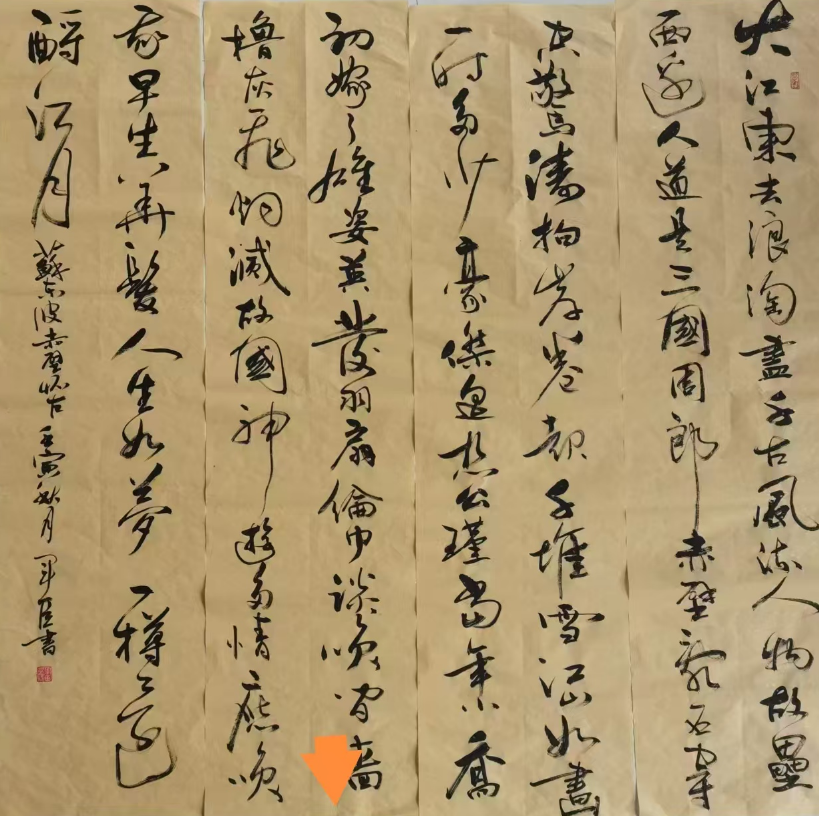 大江東去浪淘盡千古風流人物故壘
西邊人道是三國周郎赤壁亂石穿
空驚濤拍岸卷起千堆雪江山如畫
一時多少豪傑遥想公瑾當年小喬
初嫁了雄姿英發羽扇綸巾談咲間檣
櫓灰飛烟滅故國神遊多情應咲
我早生華髮人生如夢一樽還
酹江月
蘇东波赤壁怀古壬寅秋月臣書